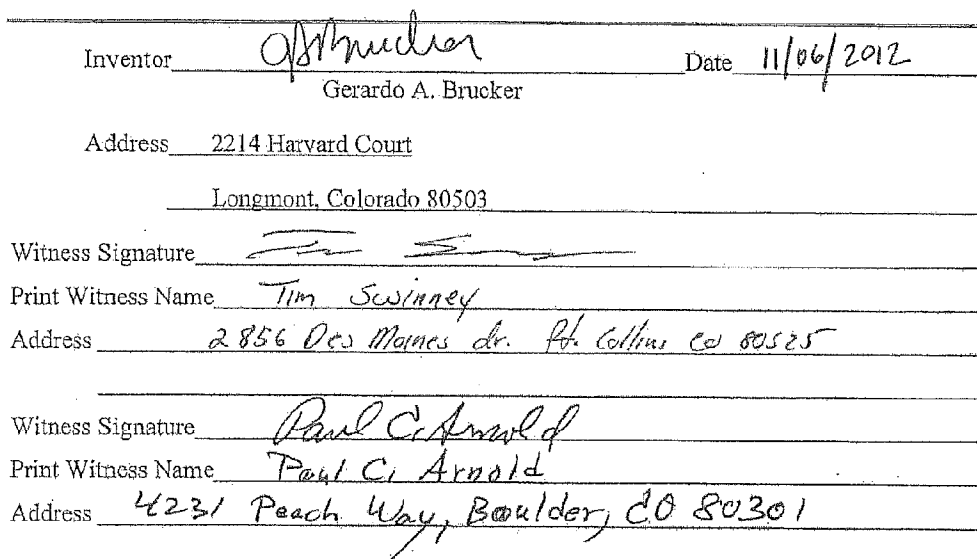 Inventor GABrucker Date 11/06/2012
Gerardo A. Brucker
Address 2214 Harvard Court
Longmont, Colorado 80503
Witness Signature
Print Witness Name Tim Swinney
Address 2856 Des Moines dr. Ft. Collins CO 80525
Witness Signature Paul C. Arnold
Print Witness Name Paul C. Arnold
Address 4231 Peach Way, Boulder, CO 80301